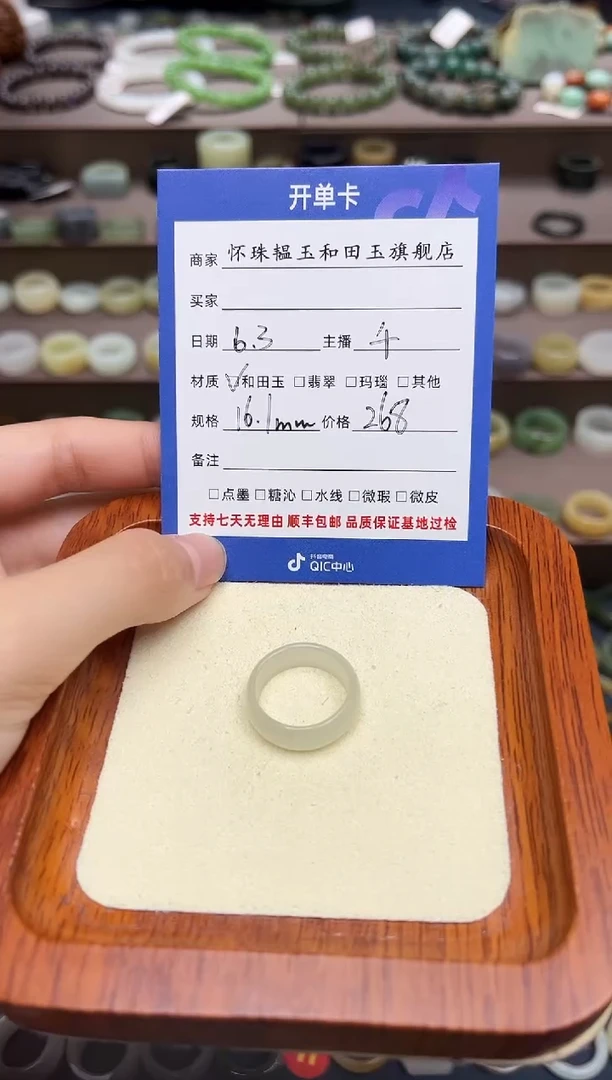 开单卡
商家 怀珠韫玉和田玉旗舰店
买家
日期 6.3 主播 牛
材质 ☑和田玉 □翡翠 □玛瑙 □其他
规格 16.1mm 价格 268
备注
□点墨 □糖沁 □水线 □微瑕 □微皮
支持七天无理由 顺丰包邮 品质保证基地过检
抖音电商
QIC中心